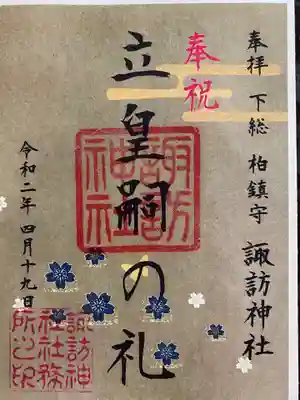 奉拝 下総 柏鎮守 諏訪神社
奉祝
立皇嗣の礼
諏訪神社
令和二年 四月十九日
諏訪神社社務所之印